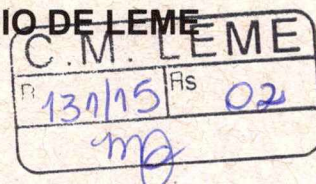 IO DE LEME
C. M. LEME
P 131/15 Fls 02